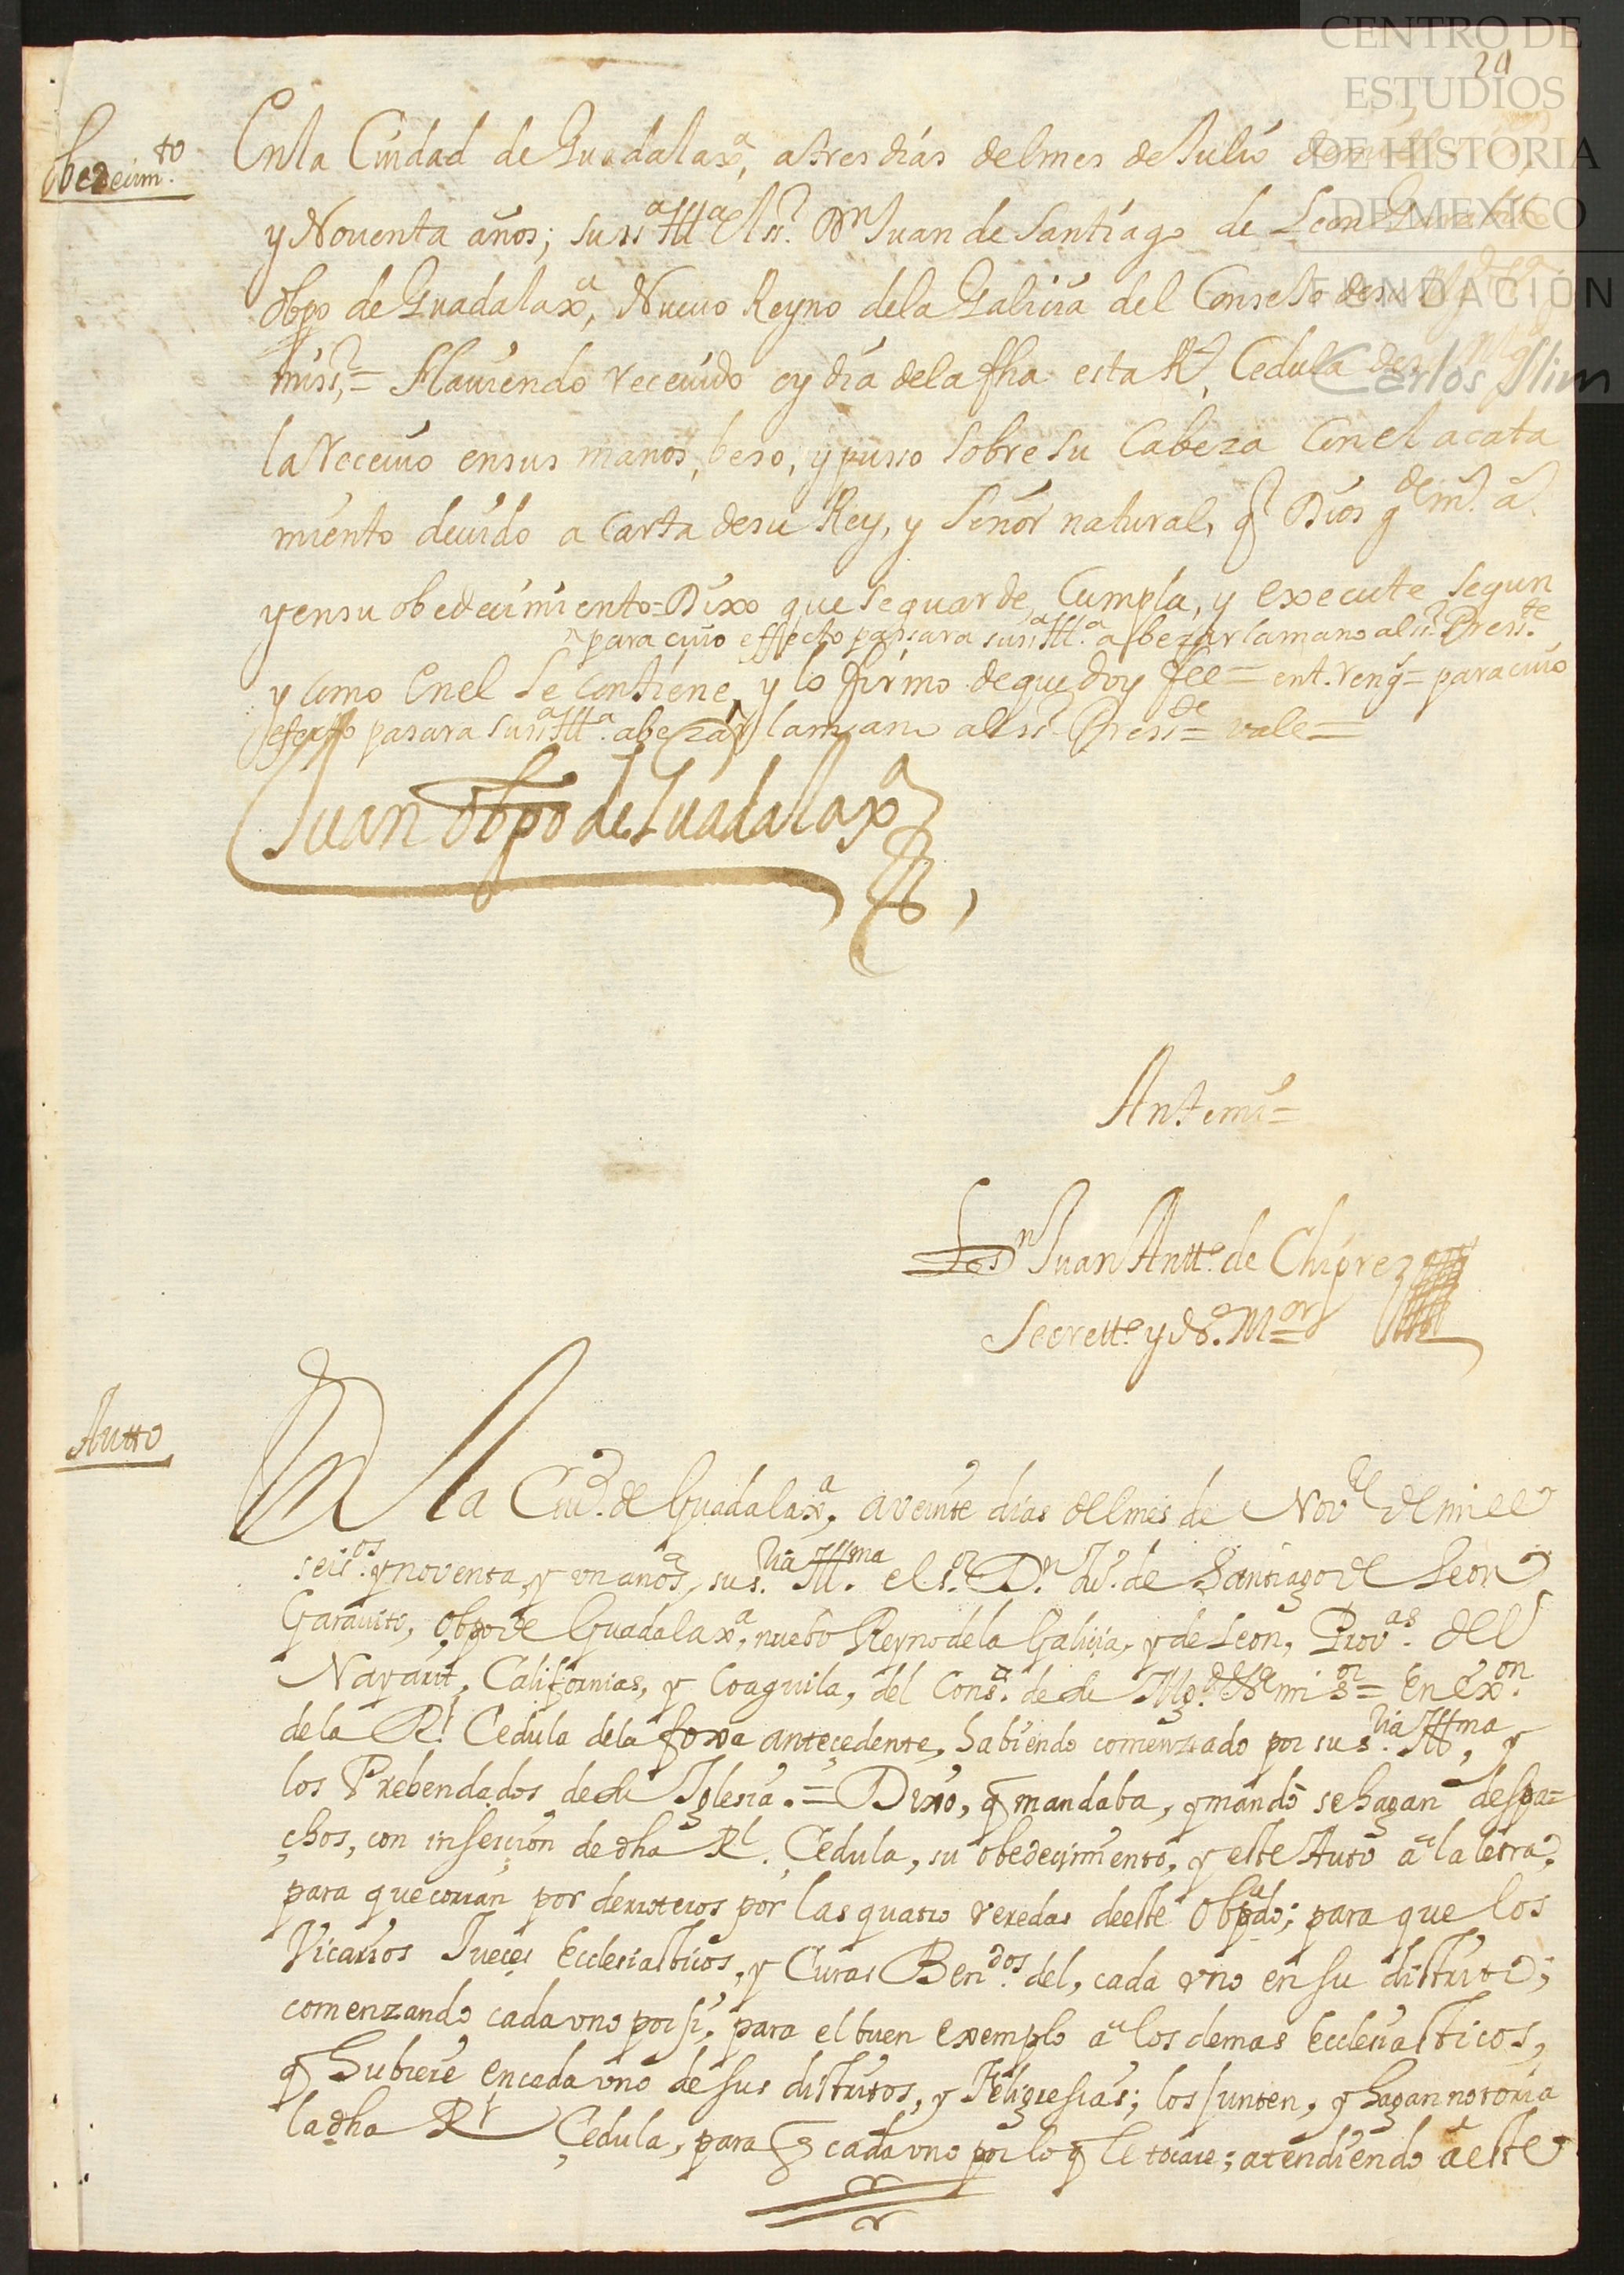 CENTRO DE
ESTUDIOS
DE HISTORIA
DE MEXICO
FUNDACIÓN
Carlos Slim
24
Obedecim.to
En la Ciudad de Guadalax.a, a tres dias del mes de Julio
y Noventa años; su ss.a Ill.a el ss.r Dn Juan de Santiago de Leon Garabito
obpo de Guadalax.a, Nuevo Reyno de la Galicia del Consejo de su
miss.r = Haviendo recevido oy dia de la fha esta R.l Cedula de
la Recevio en sus manos, beso, y pusso sobre su Cabeza con el acata
miento devido a carta de su Rey, y Señor natural, q Dios g.de m.s a.s
y en su obedecimiento = Dixo que se guarde, Cumpla, y execute segun
para cuio effecto passara su ss.a Ill.a a bezar la mano al ss.r Press.te
y como en el se contiene, y lo firmo de que doy fee = ent. reng.s = para cuio
efecto pasara su ss.a Ill.a a bezar la mano al ss.r Press.te = vale =
Juan Obpo de Guadalax.a
Ante mi =
Juan Antt.o de Chiprez
Secrett.o y N.o M.or
Autto
En la Ciu.d de Guadalax.a, a veinte dias del mes de Nov.e de mill
seis.os y noventa, y un años, su s.ria Ill.ma el s.r D.n Ju.o de Santiago de Leon
Garavito, Obpo de Guadalax.a, nuebo Reyno de la Galicia, y de Leon, Prov.as del
Nayarit, Californias, y Coaguila, del Cons.o de su Mg.d mi s.or = En ex.on
de la R.l Cedula de la foxa antecedente, habiendo comenzado por su s.ria Ill.ma, y
los Prebendados de su Iglesia. = Dixo, q mandaba, y mando se hagan despa=
chos, con insercion de dha R.l Cedula, su obedecimiento, y este Auto a la letra,
para que corran por derroteros por las quatro veredas de este Obpado; para que los
Vicarios Jueces Ecclesiasticos, y Curas Ben.dos del, cada uno en su distrito;
comenzando cada uno por si, para el buen exemplo a los demas Ecclesiasticos,
q hubiere en cada uno de sus distritos, y Feligresias; los junten, y hagan notoria
la dha R.l Cedula, para q cada uno por lo q le tocare; atendiendo a este